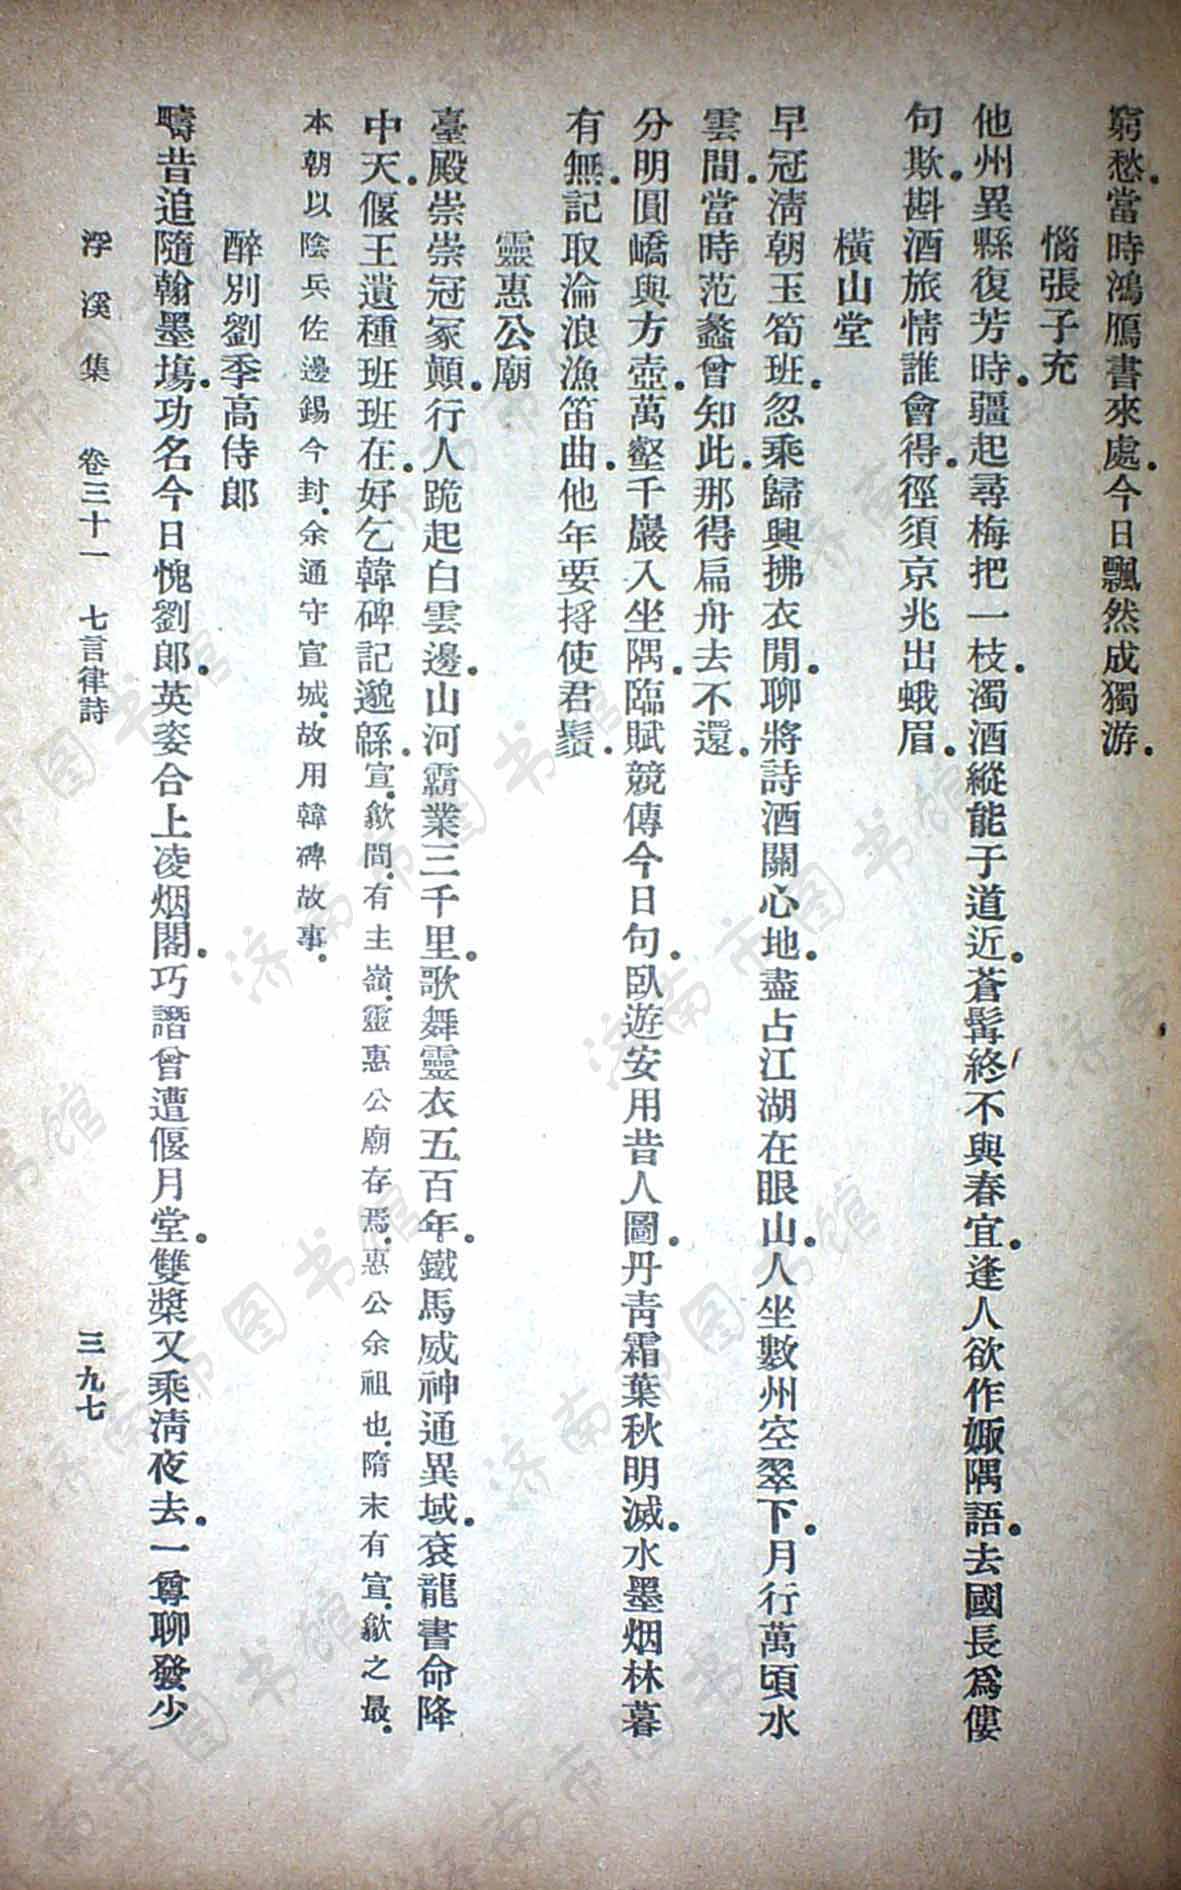 窮愁。當時鴻鴈書來處。今日飄然成獨游。
惱張子充
他州異縣復芳時。彊起尋梅把一枝。濁酒縱能于道近。蒼髯終不與春宜。逢人欲作娵隅語。去國長爲僂
句欺。斟酒旅情誰會得。徑須京兆出蛾眉。
橫山堂
早冠淸朝玉筍班。忽乘歸興拂衣閒。聊將詩酒關心地。盡占江湖在眼山。人坐數州空翠下。月行萬頃水
雲間。當時范蠡曾知此。那得扁舟去不還。
分明圓嶠與方壺。萬壑千巖入坐隅。臨賦競傳今日句。臥遊安用昔人圖。丹靑霜葉秋明滅。水墨烟林暮
有無。記取淪浪漁笛曲。他年要捋使君鬚。
靈惠公廟
臺殿崇崇冠冢顚。行人跪起白雲邊。山河霸業三千里。歌舞靈衣五百年。鐵馬威神通異域。袞龍書命降
中天。偃王遺種班班在。好乞韓碑記邈緜。宣。歙間。有主嶺。靈惠公廟存焉。惠公余祖也。隋末有宣。歙之最。
本朝以陰兵佐邊錫今封。余通守宣城。故用韓碑故事。
醉別劉季高侍郎
疇昔追隨翰墨場。功名今日愧劉郎。英姿合上凌烟閣。巧譖曾遭偃月堂。雙槳又乘淸夜去。一尊聊發少
浮溪集 卷三十一 七言律詩 三九七
济南市图书馆